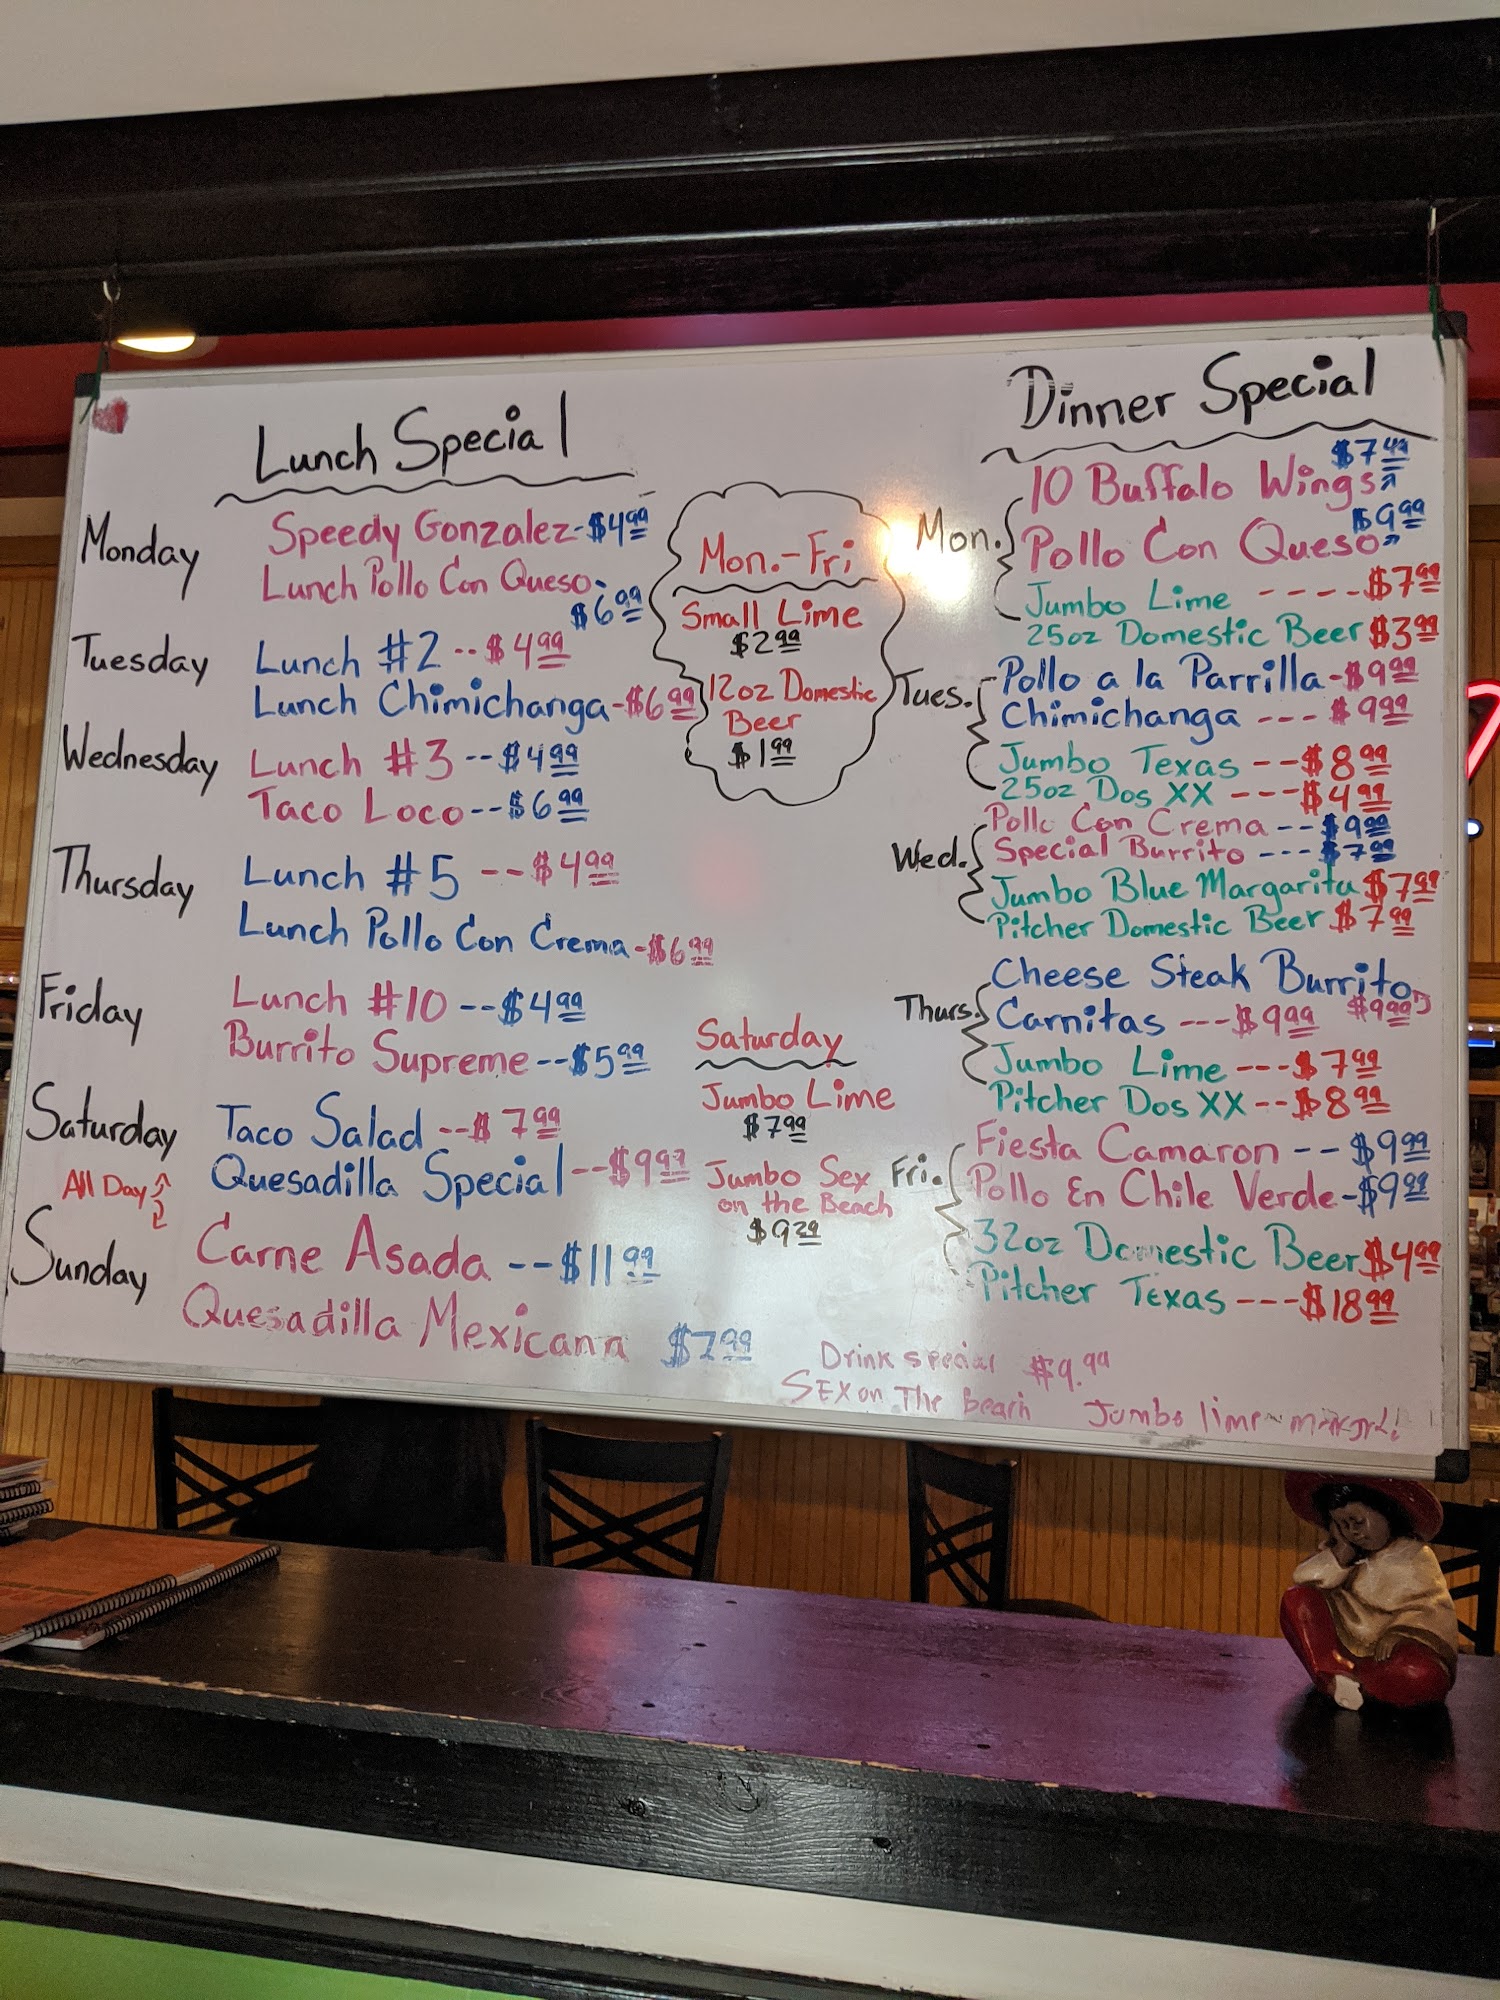 Lunch Special
Monday
Speedy Gonzalez-$4.99
Lunch Pollo Con Queso-
$6.99
Tuesday
Lunch #2 --$4.99
Lunch Chimichanga-$6.99
Wednesday
Lunch #3 --$4.99
Taco Loco--$6.99
Thursday
Lunch #5 --$4.99
Lunch Pollo Con Crema-$6.99
Friday
Lunch #10 --$4.99
Burrito Supreme--$5.99
Saturday
Taco Salad --$7.99
Quesadilla Special--$9.99
All Day
Sunday
Carne Asada --$11.99
Quesadilla Mexicana $7.99
Mon.-Fri
Small Lime
$2.99
12oz Domestic
Beer
$1.99
Saturday
Jumbo Lime
$7.99
Jumbo Sex
on the Beach
$9.29
Dinner Special
Mon.
$7.49
10 Buffalo Wings
$9.99
Pollo Con Queso
Jumbo Lime ----$7.99
25oz Domestic Beer $3.99
Tues.
Pollo a la Parrilla-$9.99
Chimichanga ---$9.99
Jumbo Texas --$8.99
25oz Dos XX ---$4.99
Wed.
Pollo Con Crema--$9.99
Special Burrito ---$7.99
Jumbo Blue Margarita $7.99
Pitcher Domestic Beer $7.99
Thurs.
Cheese Steak Burrito
$9.99
Carnitas ---$9.99
Jumbo Lime---$7.99
Pitcher Dos XX --$8.99
Fri.
Fiesta Camaron --$9.99
Pollo En Chile Verde-$9.99
32oz Domestic Beer $4.99
Pitcher Texas ---$18.99
Drink special $9.99
SEX on The Beach Jumbo lime